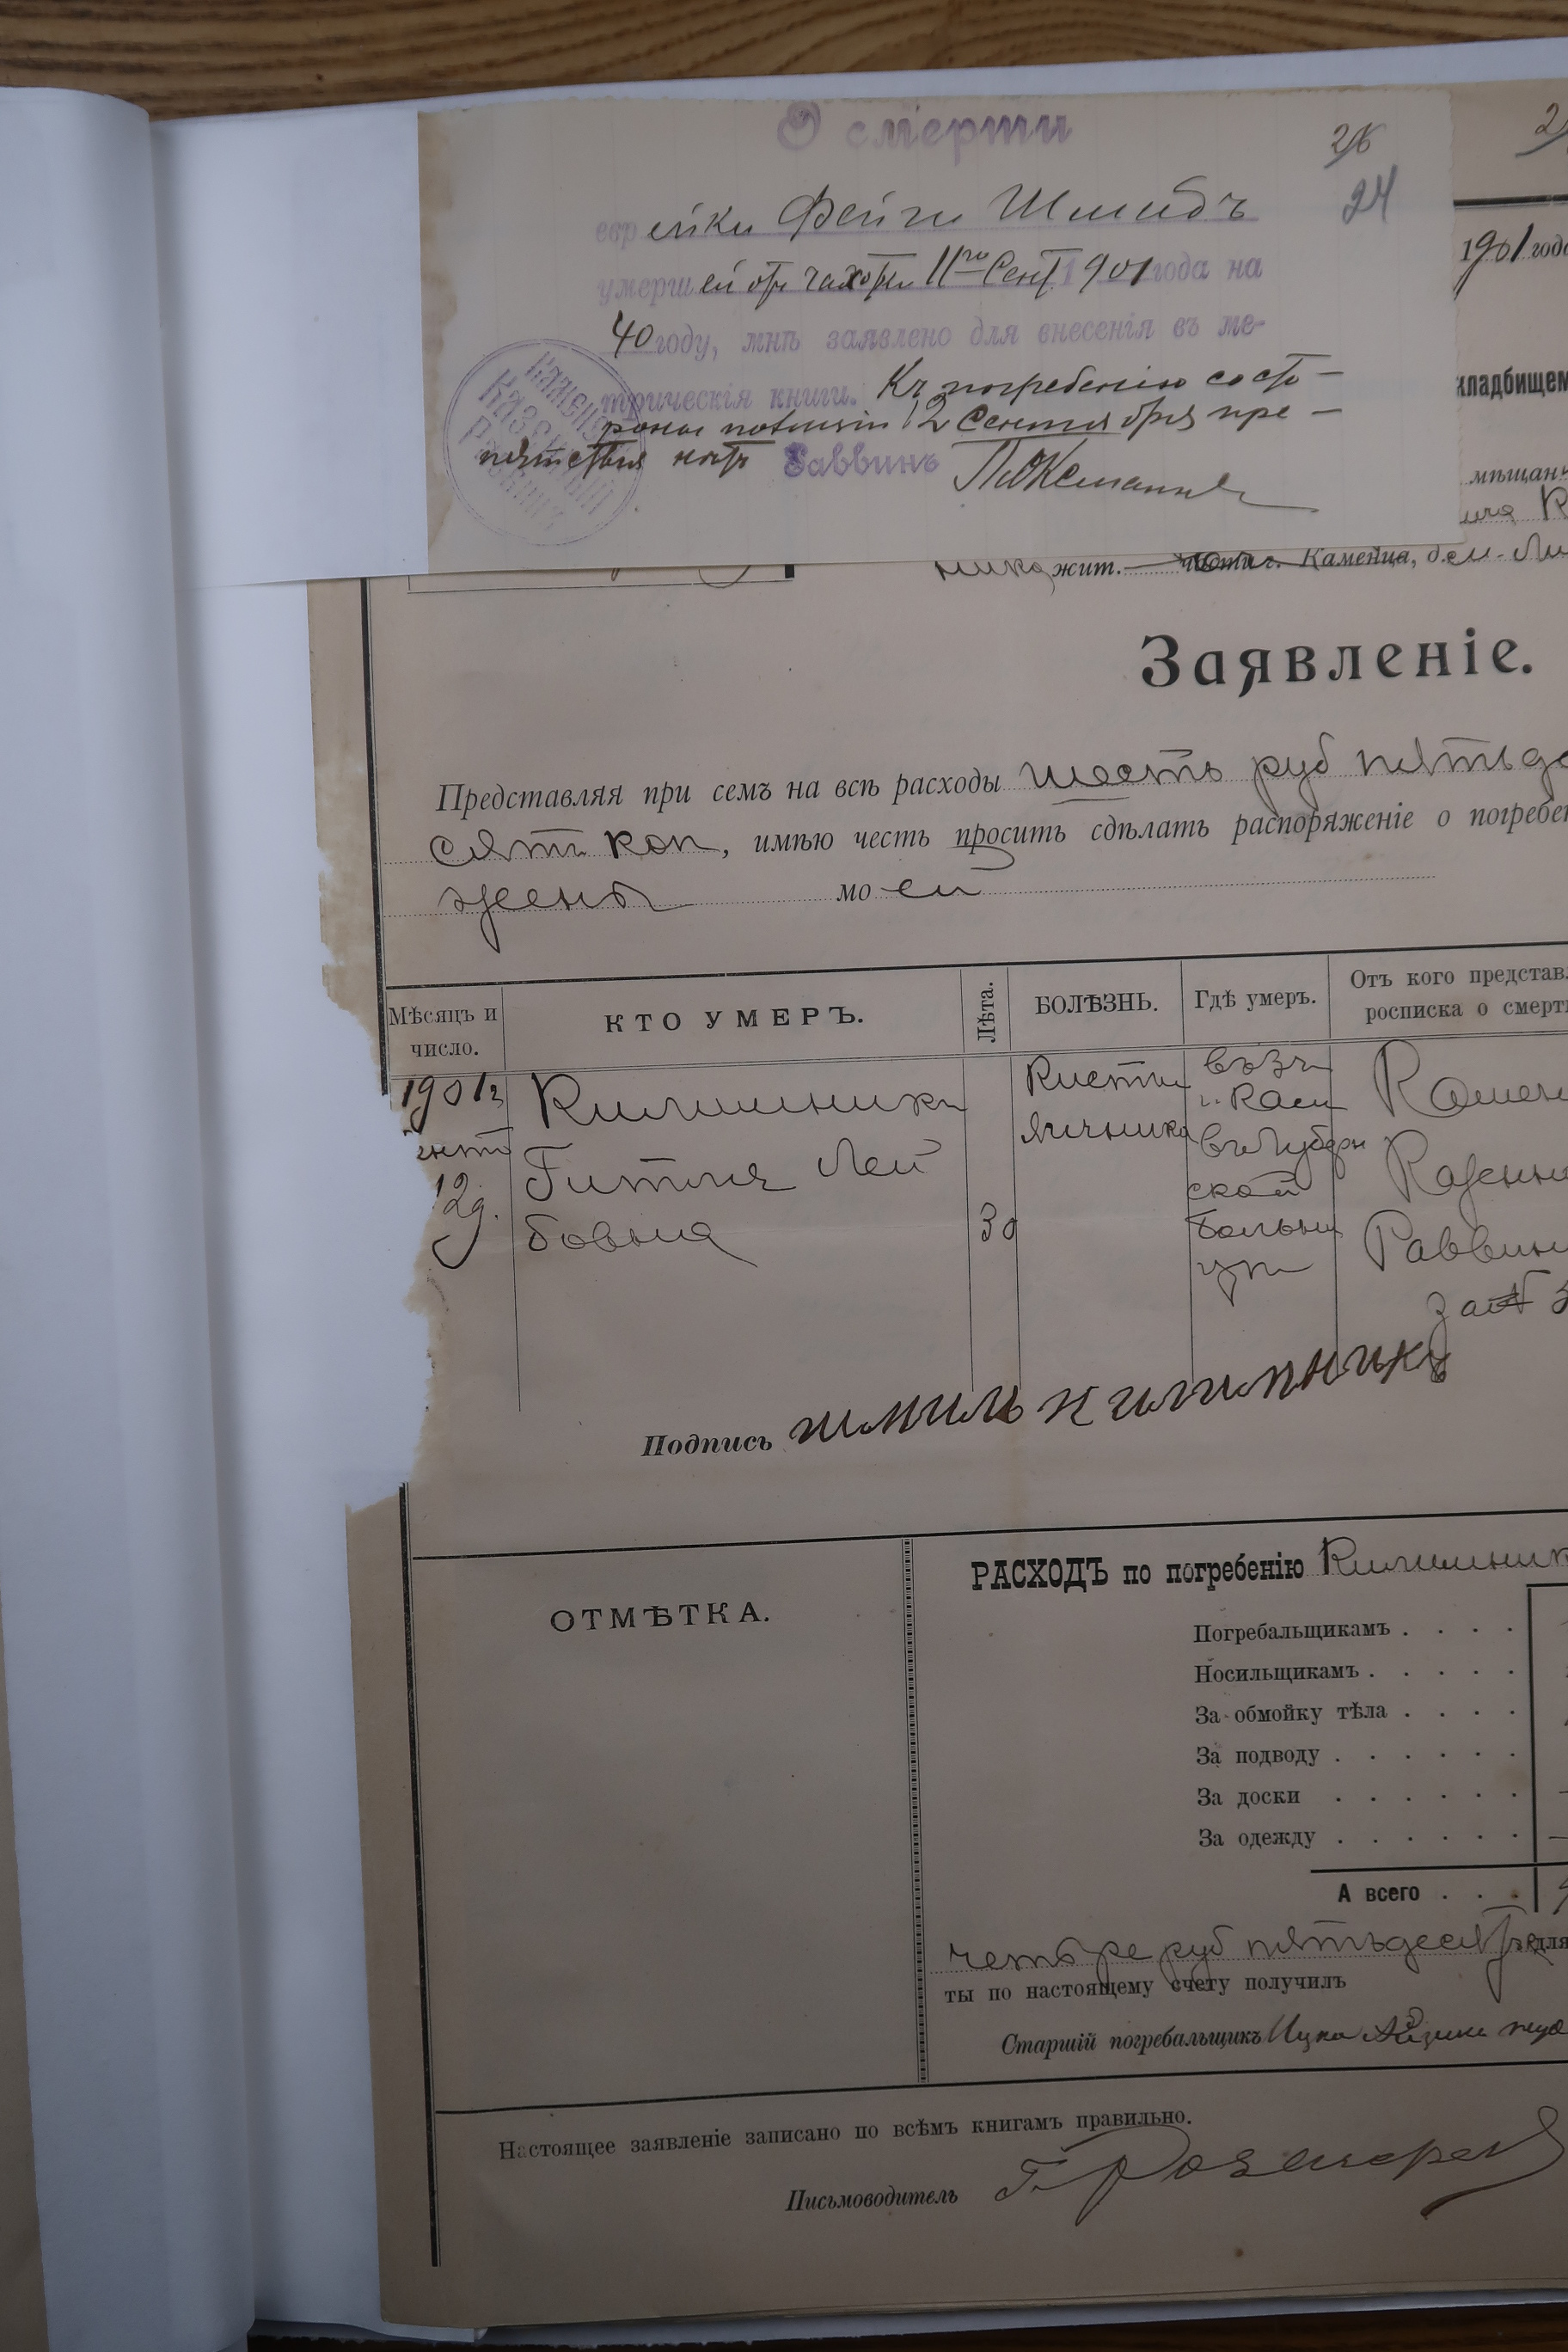 О смерти
2/6
24
еврейки Фейги Шмидъ
умершей отъ чахотки 11го Сент 1901 года на
40 году, мнѣ заявлено для внесенія въ ме-
трическія книги. Къ погребенію со сто-
роны полиціи 12 Сентября пре-
пятствія нѣтъ Раввинъ
КАМЕН
КАЗЕННЫЙ
РАВВИНЪ
1901 года
кладбищем
мѣщан
ника жит. части г. Каменца, д.
Заявленіе.
Представляя при семъ на всѣ расходы шесть руб пятьде
сятъ коп, имѣю честь просить сдѣлать распоряженіе о погребен
жены моей
Мѣсяцъ и число.
КТО УМЕРЪ.
Лѣта.
БОЛѢЗНЬ.
Гдѣ умеръ.
Отъ кого представл
росписка о смерти
1901г
ент
12д.
Килимникъ
Гитля Лей
бовна
30
Кисты
яичника
въ Губерн
ской
больни
цѣ
Камен
Казенны
Раввин
за №
Подпись шмиль килимникъ
ОТМѢТКА.
РАСХОДЪ по погребенію Килимник
Погребальщикамъ . . . .
Носильщикамъ . . . . .
За обмойку тѣла . . . .
За подводу . . . . . .
За доски . . . . . .
За одежду . . . . . .
А всего . . .
четыре руб пятьдесят для
ты по настоящему счету получилъ
Старшій погребальщикъ Ицко
Настоящее заявленіе записано по всѣмъ книгамъ правильно.
Письмоводитель